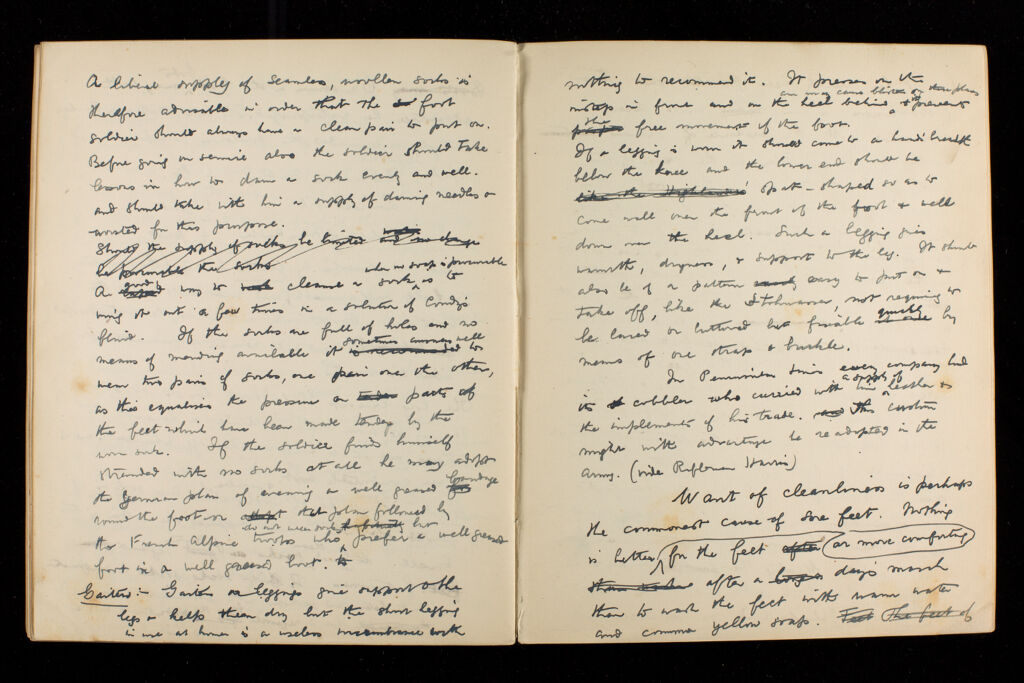 A liberal supply of seamless, woollen socks is
therefore advisable in order that the foot
soldier should always have a clean pair to put on.
Before going on service also the soldier should take
lessons in how to darn a sock evenly and well.
and should take with him a supply of darning needles &
worsted for this purpose.
Should the supply of socks be limited and no change
be procurable the socks
when no soap is procurable
A good way to cleanse a sock, is to
wring it out a few times in a solution of Condy's
fluid. If the socks are full of holes and no
means of mending available it sometimes answers well to
wear two pairs of socks, one pair over the other,
as this equalises the pressure on parts of
the feet which have been made tender by the
worn sock. If the soldier finds himself
stranded with no socks at all he may adopt
the German plan of a well greased bandage
round the foot or adopt that plan followed by
do not wear socks
the French Alpine troops who prefer a well greased
foot in a well greased boot.
Gaiters:- Gaiters or leggings give support to the
legs & help them dry but the short legging
in use at home is a useless incumbrance with
nothing to recommend it. It presses on the
an may cause blisters on these places
instep in front and on the heel behind & prevents
the free movement of the boot.
If a legging is worn it should come to a hand's breadth
below the knee and the lower end should be
like the Highlanders' spat-shaped so as to
come well over the front of the foot & well
down over the heel. Such a legging gives
warmth, dryness, & support to the leg. It should
also be of a pattern easy to put on &
take off, like the Stohwasser, not requiring to
be laced or buttered but fixable quickly by
means of one strap & buckle.
In Peninsular times every company had
a supply of
its cobbler who carried with him leather &
the implements of his trade. and this custom
might with advantage be readopted in the
army. (vide Rifleman Harris)
Want of cleanliness is perhaps
the commonest cause of sore feet. Nothing
is better for the feet after (or more comforting
after a long day's march
than to wash the feet with warm water
and common yellow soap. Feet The feet of